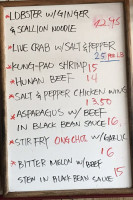 LOBSTER W/ GINGER
& SCALLION NOODLE 42.95
LIVE CRAB W/ SALT & PEPPER
25
KUNG-PAO SHRIMP 15
HUNAN BEEF 14
SALT & PEPPER CHICKEN WING
13.50
ASPARAGUS W/ BEEF
IN BLACK BEAN SAUCE 16
STIR FRY ONG CHOI W/ GARLIC
16
BITTER MELON W/ BEEF
STEW IN BLACK BEAN SAUCE 15